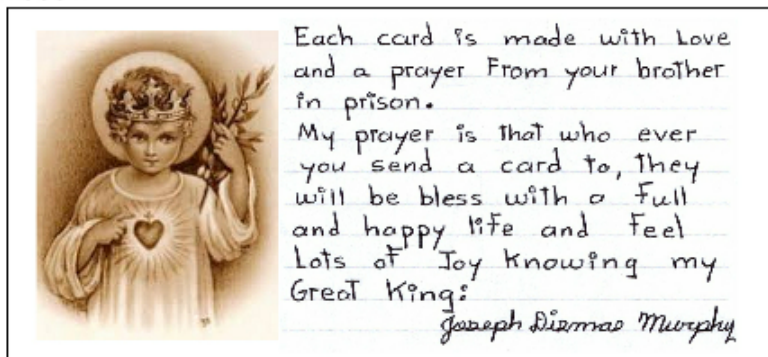 Each card is made with Love
and a prayer From your brother
in prison.
My prayer is that who ever
you send a card to, they
will be bless with a full
and happy life and feel
Lots of Joy Knowing my
Great King:
Joseph Dismas Murphy